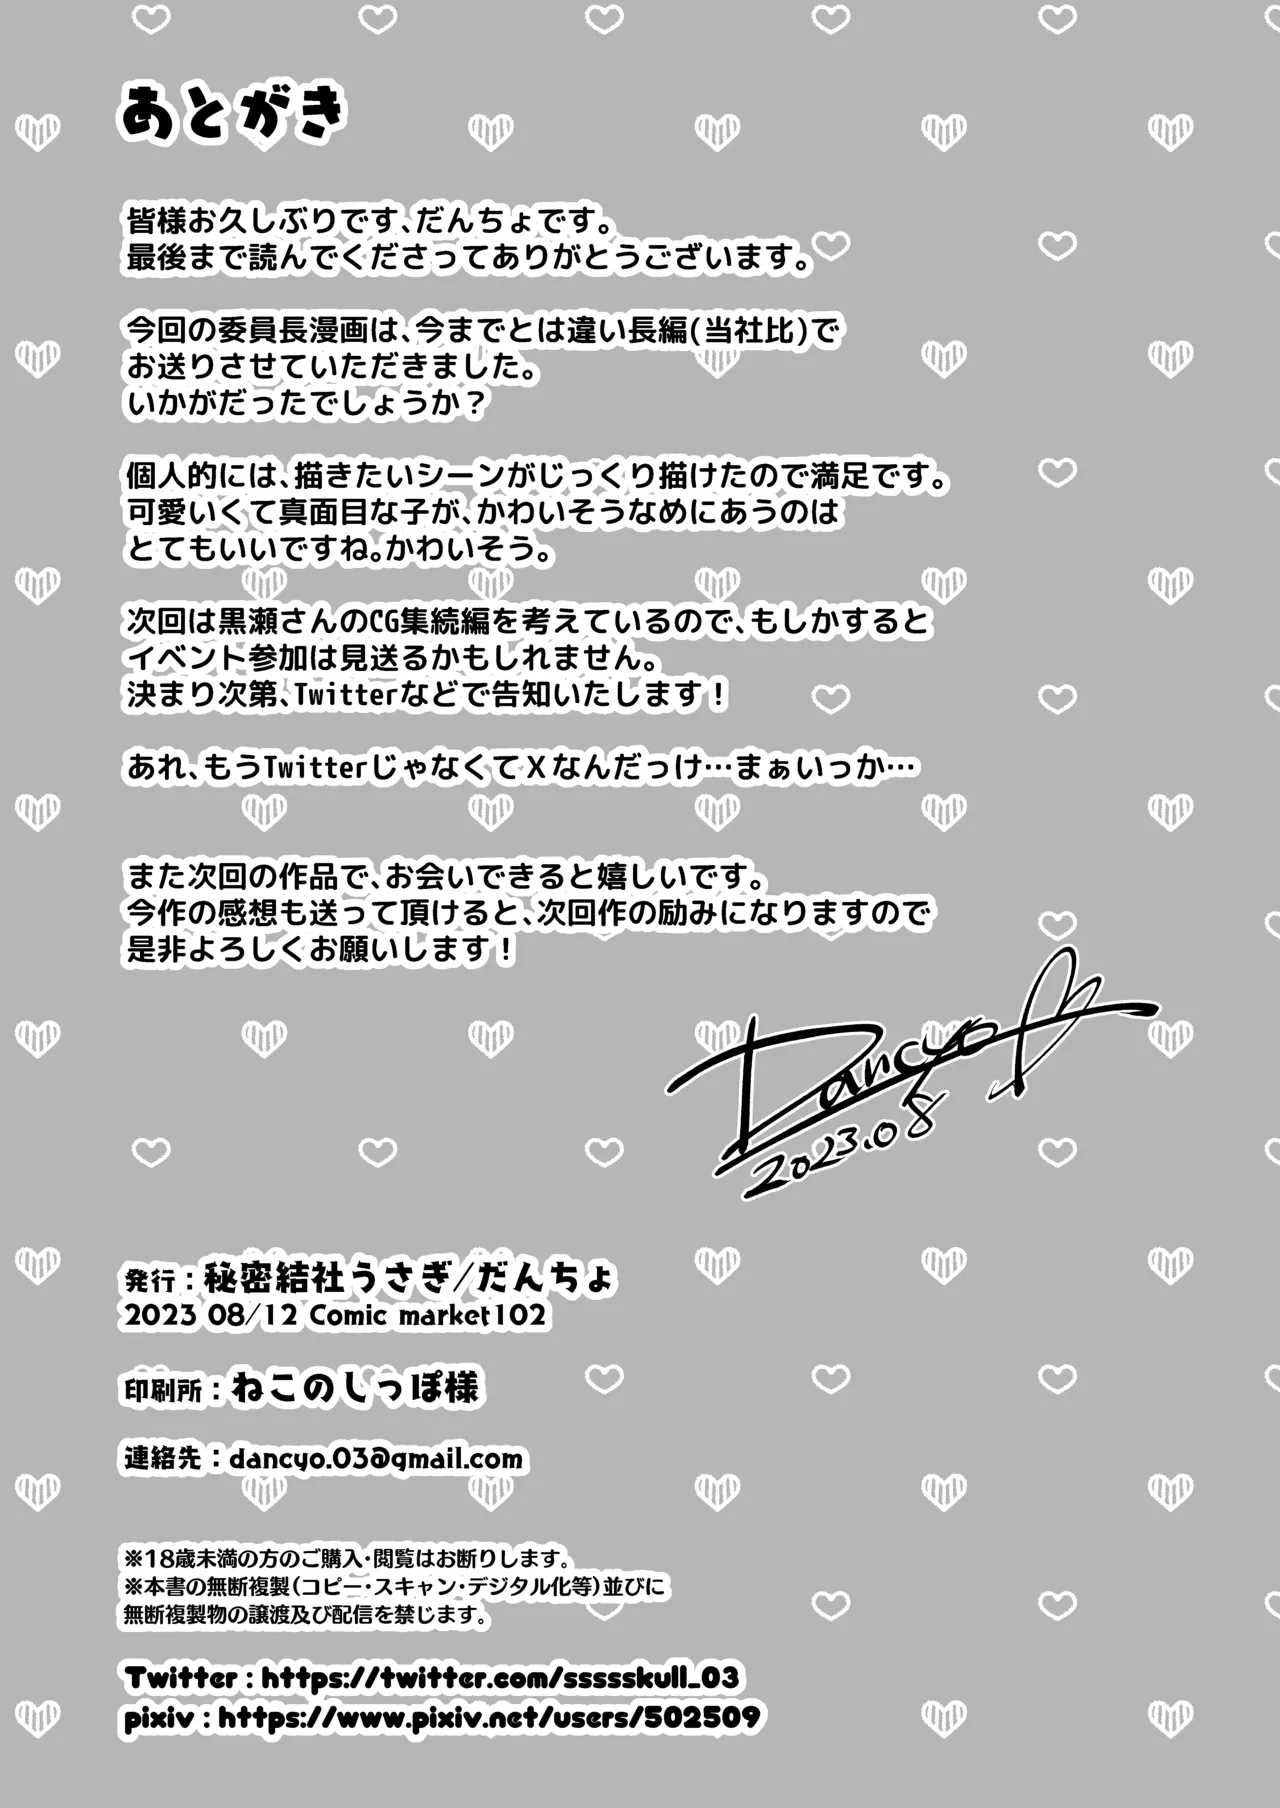 あとがき
皆様お久しぶりです、だんちょです。
最後まで読んでくださってありがとうございます。
今回の委員長漫画は、今までとは違い長編(当社比)で
お送りさせていただきました。
いかがだったでしょうか？
個人的には、描きたいシーンがじっくり描けたので満足です。
可愛いくて真面目な子が、かわいそうなめにあうのは
とてもいいですね。かわいそう。
次回は黒瀬さんのCG集続編を考えているので、もしかすると
イベント参加は見送るかもしれません。
決まり次第、Twitterなどで告知いたします！
あれ、もうTwitterじゃなくてXなんだっけ…まぁいっか…
また次回の作品で、お会いできると嬉しいです。
今作の感想も送って頂けると、次回作の励みになりますので
是非よろしくお願いします！
Dancyo
2023.08
発行：秘密結社うさぎ/だんちょ
2023 08/12 Comic market102
印刷所：ねこのしっぽ様
連絡先：dancyo.03@gmail.com
※18歳未満の方のご購入・閲覧はお断りします。
※本書の無断複製(コピー・スキャン・デジタル化等)並びに
無断複製物の譲渡及び配信を禁じます。
Twitter : https://twitter.com/sssssskull_03
pixiv : https://www.pixiv.net/users/502509